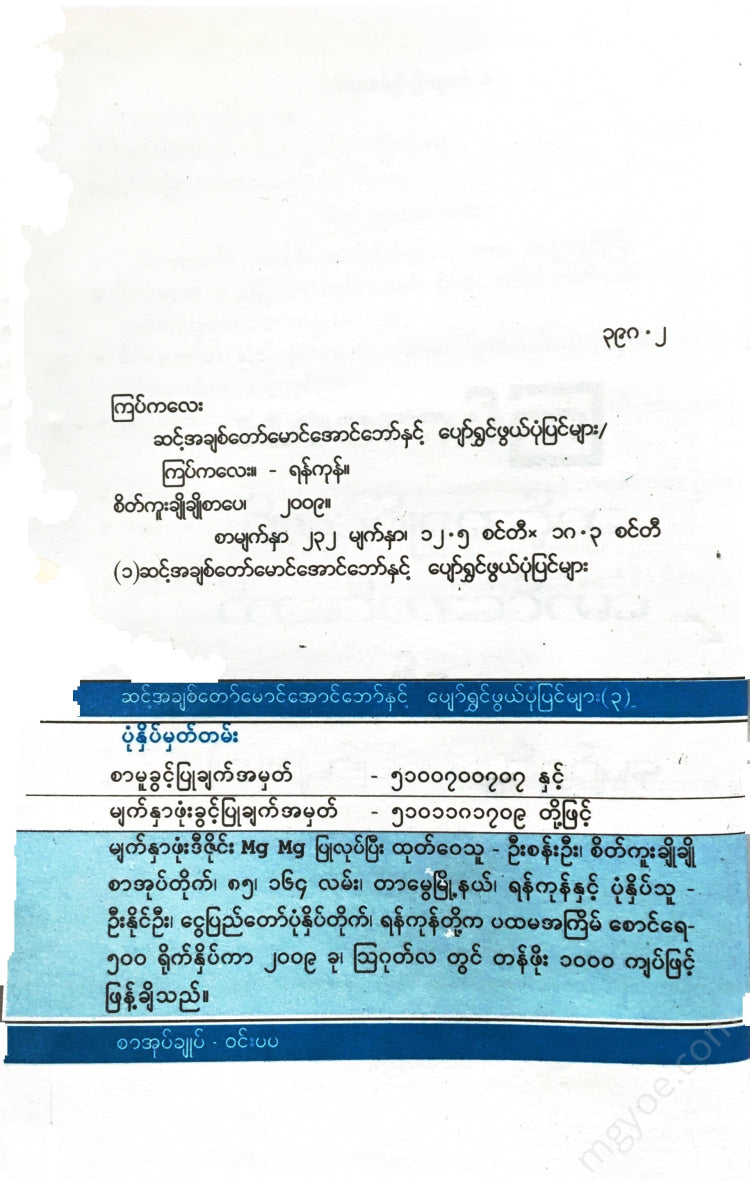 ၃၉၈ · ၂
ကြပ်ကလေး
ဆင့်အချစ်တော်မောင်အောင်ဘော်နှင့် ပျော်ရွှင်ဖွယ်ပုံပြင်များ/
ကြပ်ကလေး။ - ရန်ကုန်။
စိတ်ကူးချိုချိုစာပေ၊ ၂၀၀၉။
စာမျက်နှာ ၂၃၂ မျက်နှာ၊ ၁၂·၅ စင်တီ× ၁၈·၃ စင်တီ
(၁)ဆင့်အချစ်တော်မောင်အောင်ဘော်နှင့် ပျော်ရွှင်ဖွယ်ပုံပြင်များ
ဆင့်အချစ်တော်မောင်အောင်ဘော်နှင့် ပျော်ရွှင်ဖွယ်ပုံပြင်များ(၃)
ပုံနှိပ်မှတ်တမ်း
စာမူခွင့်ပြုချက်အမှတ် - ၅၁၀၀၇၀၀၇၀၇ နှင့်
မျက်နှာဖုံးခွင့်ပြုချက်အမှတ် - ၅၁၀၁၁၈၁၇၀၉ တို့ဖြင့်
မျက်နှာဖုံးဒီဇိုင်း Mg Mg ပြုလုပ်ပြီး ထုတ်ဝေသူ - ဦးစန်းဦး၊ စိတ်ကူးချိုချို
စာအုပ်တိုက်၊ ၈၅၊ ၁၆၄ လမ်း၊ တာမွေမြို့နယ်၊ ရန်ကုန်နှင့် ပုံနှိပ်သူ -
ဦးနိုင်ဦး၊ ငွေပြည်တော်ပုံနှိပ်တိုက်၊ ရန်ကုန်တို့က ပထမအကြိမ် စောင်ရေ-
၅၀၀ ရိုက်နှိပ်ကာ ၂၀၀၉ ခု၊ ဩဂုတ်လ တွင် တန်ဖိုး ၁၀၀၀ ကျပ်ဖြင့်
ဖြန့်ချိသည်။
စာအုပ်ချုပ် - ဝင်းပပ
mgyoe.com